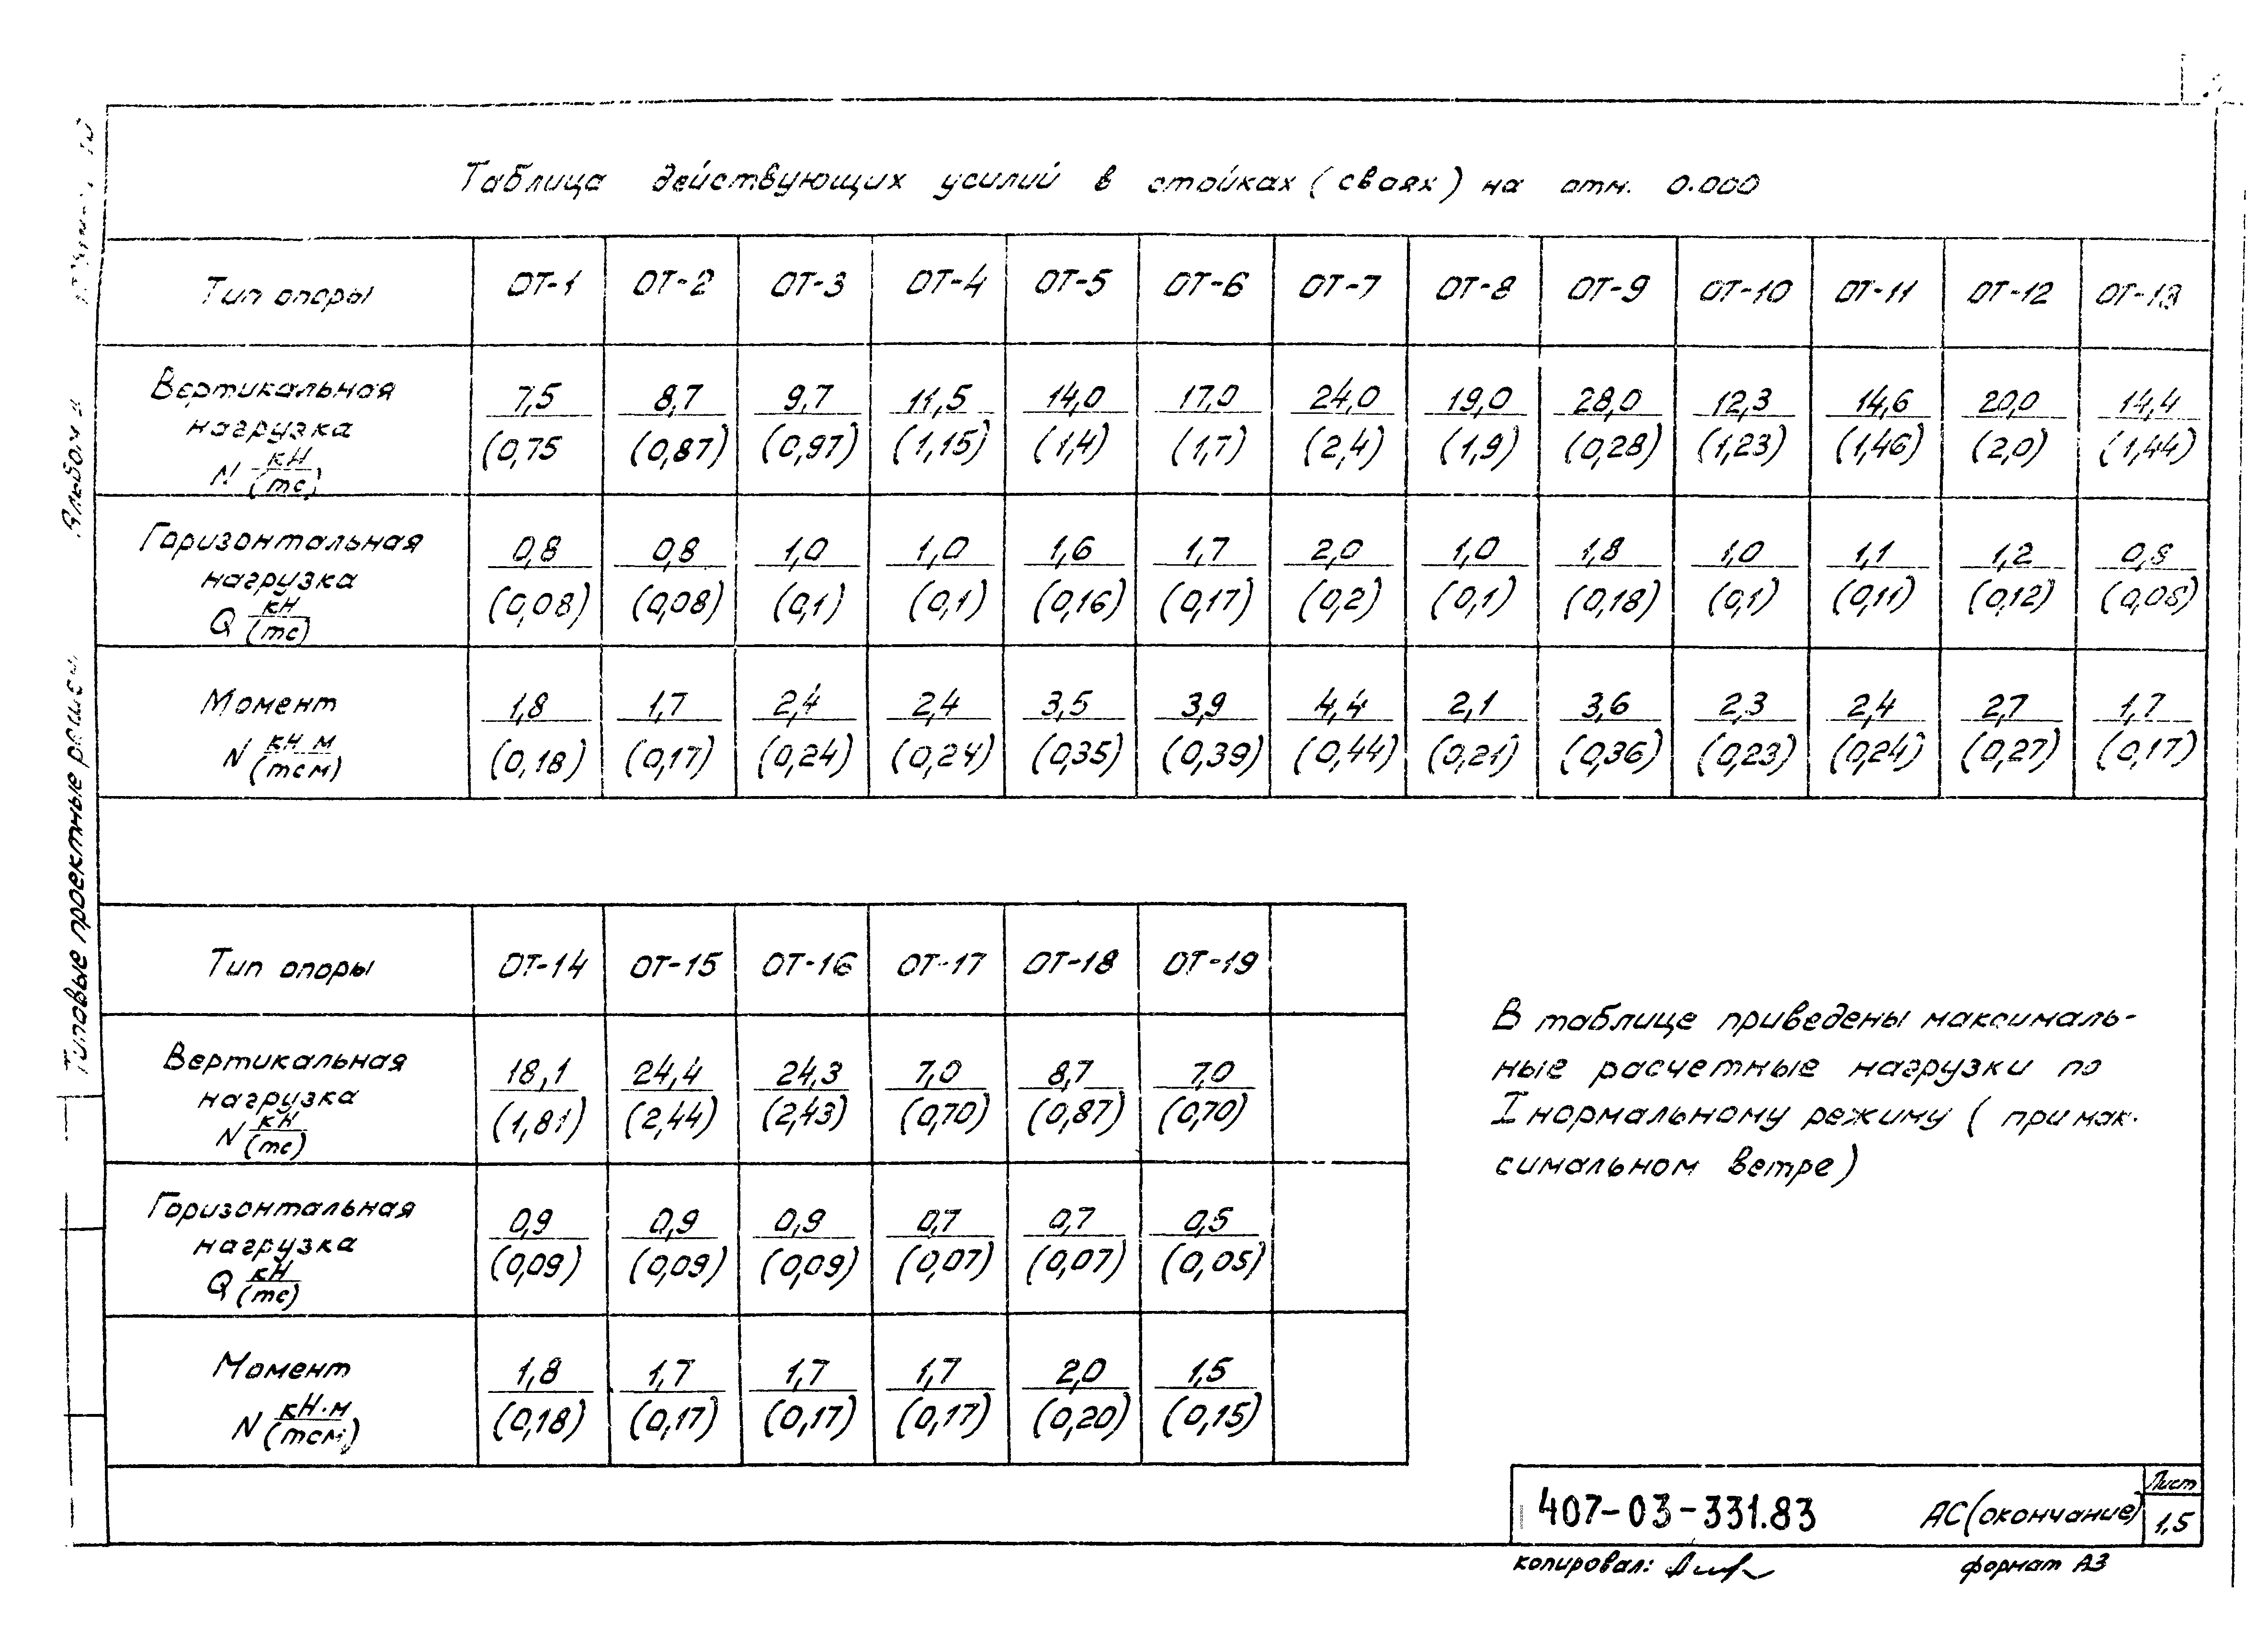 Таблица действующих усилий в стойках (сваях) на отм. 0.000
Тип опоры ОТ-1 ОТ-2 ОТ-3 ОТ-4 ОТ-5 ОТ-6 ОТ-7 ОТ-8 ОТ-9 ОТ-10 ОТ-11 ОТ-12 ОТ-13
Вертикальная
нагрузка
N кН
(тс)
7,5 8,7 9,7 11,5 14,0 17,0 24,0 19,0 28,0 12,3 14,6 20,0 14,4
(0,75 (0,87) (0,97) (1,15) (1,4) (1,7) (2,4) (1,9) (0,28) (1,23) (1,46) (2,0) (1,44)
Горизонтальная
нагрузка
Q кН
(тс)
0,8 0,8 1,0 1,0 1,6 1,7 2,0 1,0 1,8 1,0 1,1 1,2 0,8
(0,08) (0,08) (0,1) (0,1) (0,16) (0,17) (0,2) (0,1) (0,18) (0,1) (0,11) (0,12) (0,08)
Момент
N кН м
(тсм)
1,8 1,7 2,4 2,4 3,5 3,9 4,4 2,1 3,6 2,3 2,4 2,7 1,7
(0,18) (0,17) (0,24) (0,24) (0,35) (0,39) (0,44) (0,21) (0,36) (0,23) (0,24) (0,27) (0,17)
Тип опоры ОТ-14 ОТ-15 ОТ-16 ОТ-17 ОТ-18 ОТ-19
Вертикальная
нагрузка
N кН
(тс)
18,1 24,4 24,3 7,0 8,7 7,0
(1,81) (2,44) (2,43) (0,70) (0,87) (0,70)
Горизонтальная
нагрузка
Q кН
(тс)
0,9 0,9 0,9 0,7 0,7 0,5
(0,09) (0,09) (0,09) (0,07) (0,07) (0,05)
Момент
N кН·м
(тсм)
1,8 1,7 1,7 1,7 2,0 1,5
(0,18) (0,17) (0,17) (0,17) (0,20) (0,15)
В таблице приведены максималь-
ные расчетные нагрузки по
I нормальному режиму ( при мак-
симальном ветре)
407-03-331.83 АС(окончание) Лист
1,5
копировал:
формат А3
Типовые проектные
Альбом